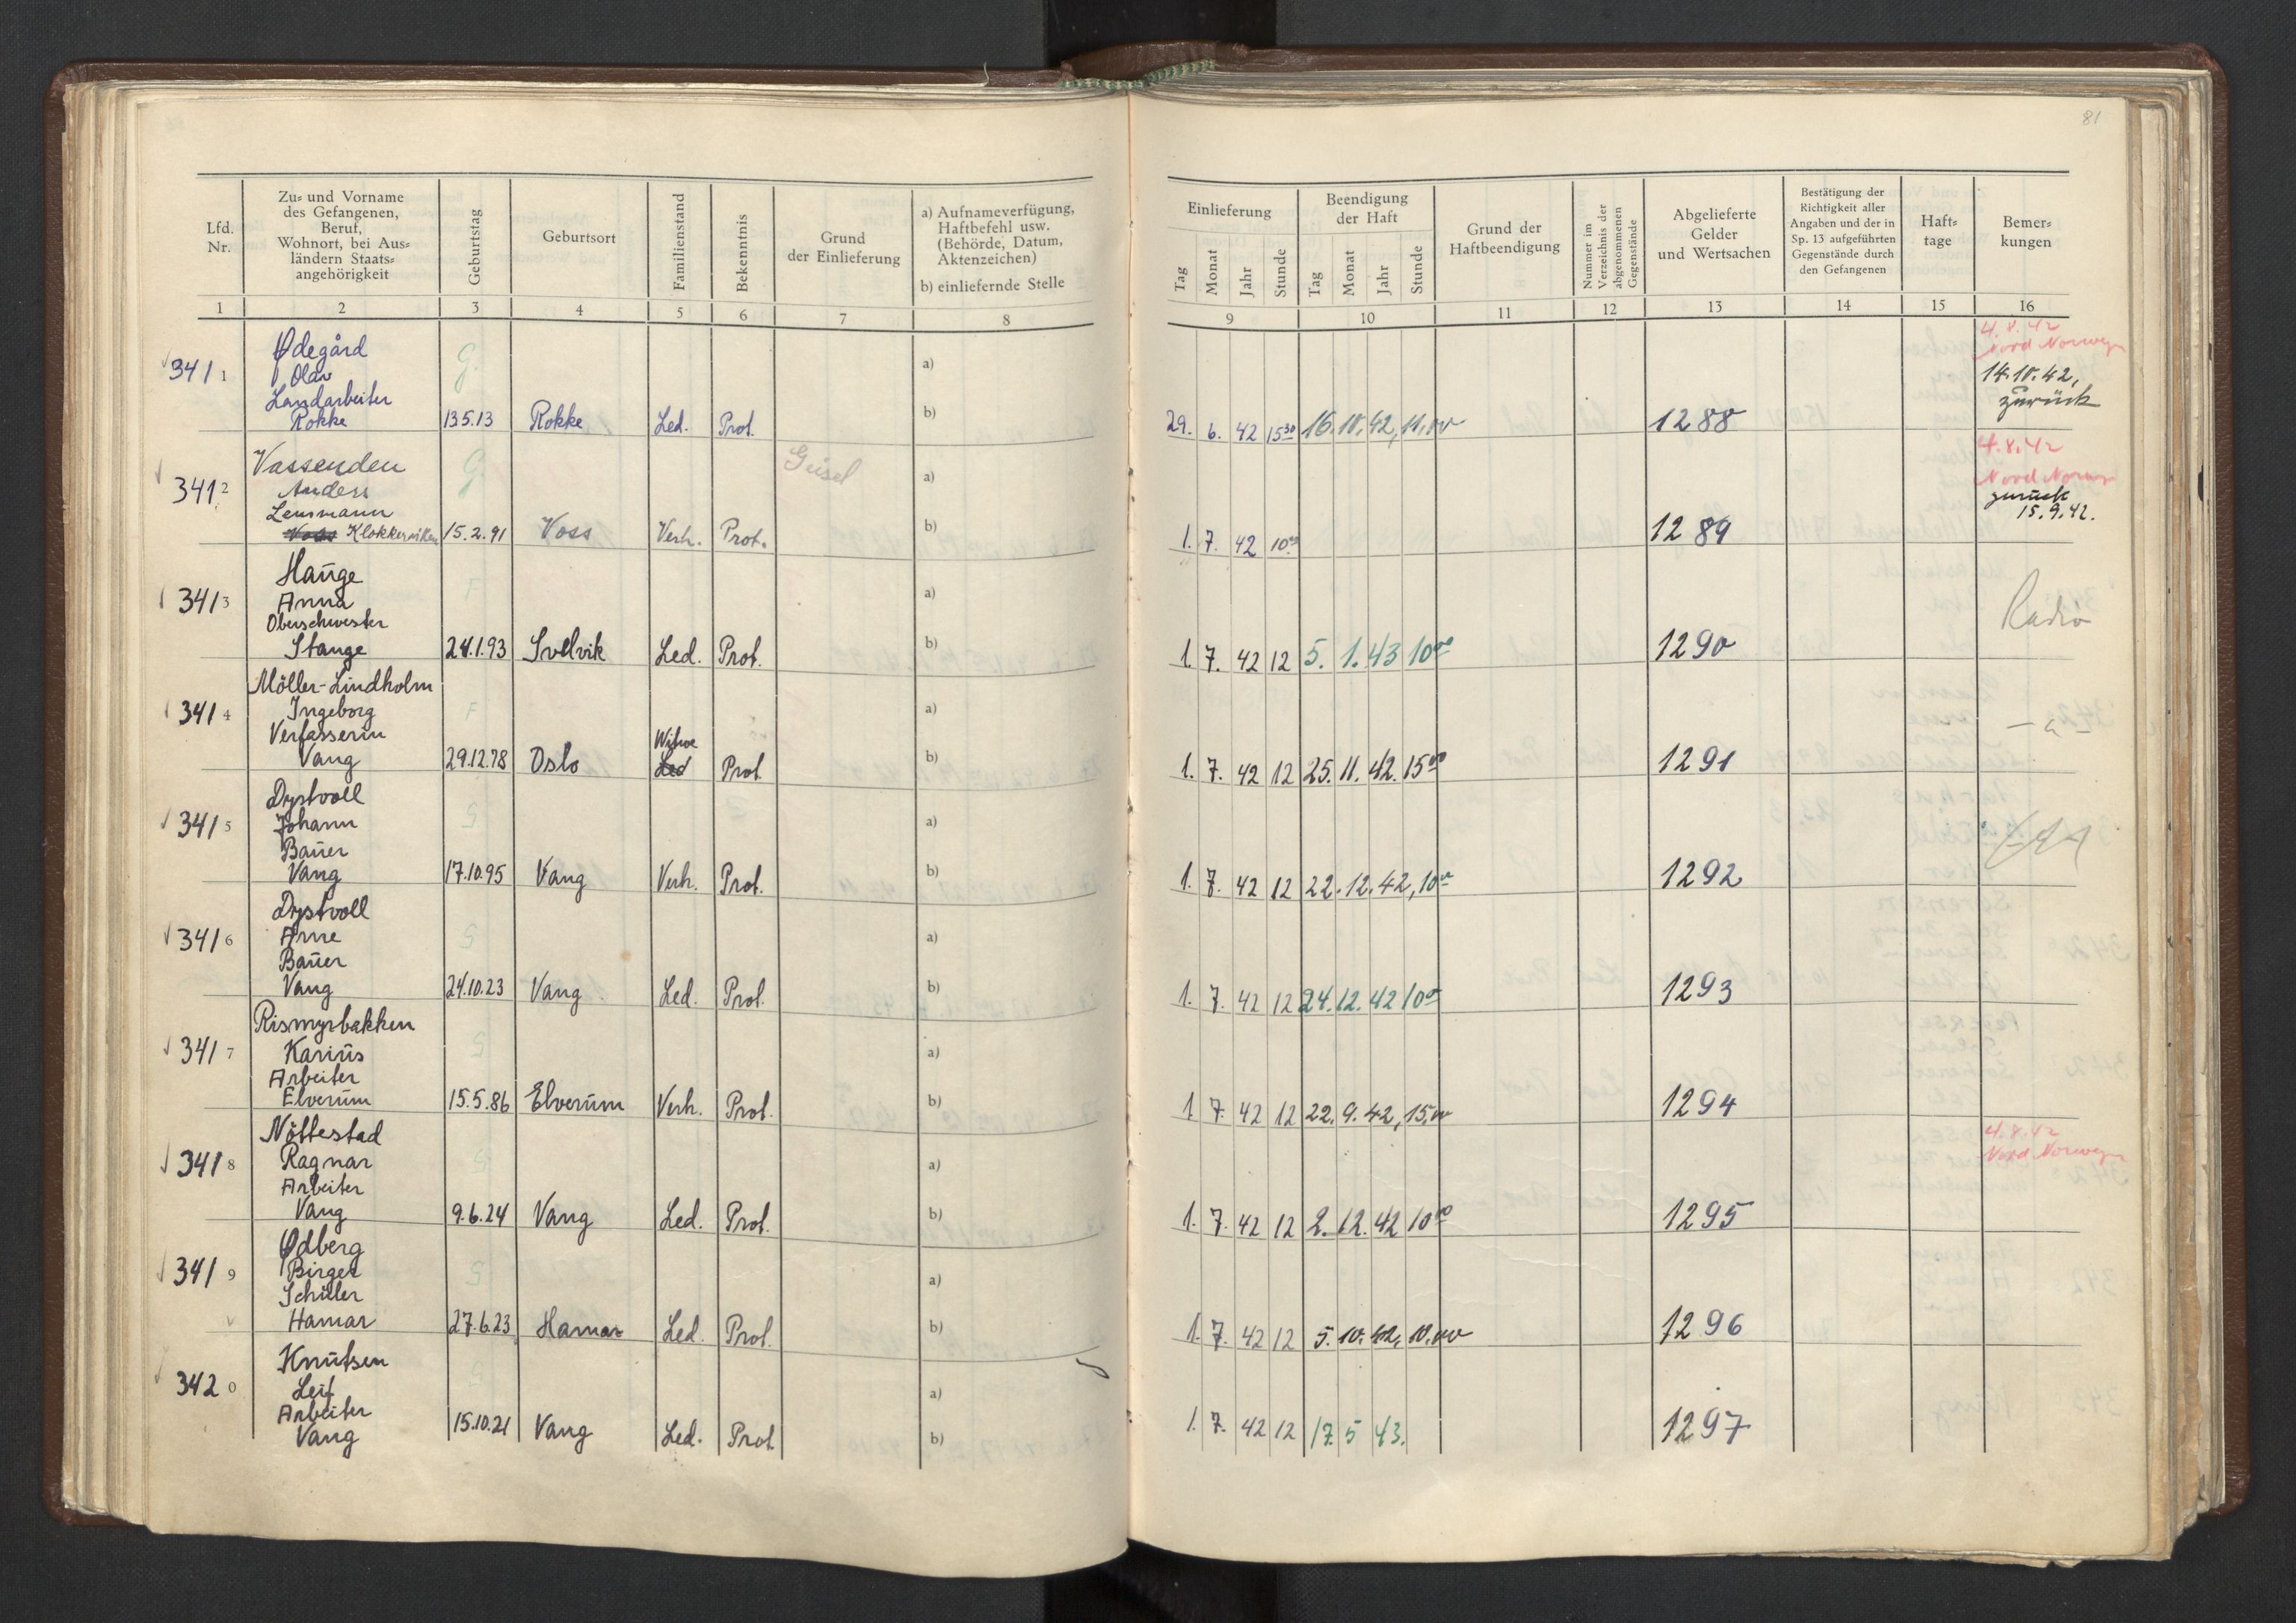 81
Lfd. Nr.
Zu- und Vorname
des Gefangenen,
Beruf,
Wohnort, bei Aus-
ländern Staats-
angehörigkeit
Geburtstag
Geburtsort
Familienstand
Bekenntnis
Grund
der Einlieferung
a) Aufnameverfügung,
Haftbefehl usw.
(Behörde, Datum,
Aktenzeichen)
b) einliefernde Stelle
Einlieferung
Tag Monat Jahr Stunde
Beendigung
der Haft
Tag Monat Jahr Stunde
Grund der
Haftbeendigung
Nummer im
Verzeichnis der
abgenommenen
Gegenstände
Abgelieferte
Gelder
und Wertsachen
Bestätigung der
Richtigkeit aller
Angaben und der in
Sp. 13 aufgeführten
Gegenstände durch
den Gefangenen
Hafts-
tage
Bemer-
kungen
1 2 3 4 5 6 7 8 9 10 11 12 13 14 15 16
Ødegård G. 4.8.42
Nord Norwegen
3411 Olav a) 14.10.42,
Landarbeiter zurück
Rokke 13.5.13 Rokke Led. Prot. b) 29. 6. 42 15 30 16.10.42, 11,00 1288
Vassenden G Geisel 4.8.42
3412 Anders a) Nord Norw
Lensmann zurück
Voss Klokkerviken 15.2.91 Voss Verh. Prot. b) 1. 7. 42 10 00 1289 15.9.42.
Hauge F
3413 Anna a) Radio
Oberschwester
Stange 24.1.93 Svelvik Led. Prot. b) 1. 7. 42 12 5. 1. 43 10 00 1290
Möller-Lindholm
3414 Ingeborg F a) – " –
Verfasserin Witwe
Vang 29.12.78 Oslo Led Prot b) 1. 7. 42 12 25. 11. 42. 15 00 1291
Dystvoll
3415 Johann G a)
Bauer
Vang 17.10.95 Vang Verh. Prot. b) 1. 7. 42 12 22.12.42, 10 00 1292
Dystvoll
3416 Arne G a)
Bauer
Vang 24.10.23 Vang Led. Prot. b) 1. 7. 42 12 24.12.42 10 00 1293
Rismyrbakken
3417 Karius G a)
Arbeiter
Elverum 15.5.86 Elverum Verh. Prot. b) 1 7. 42 12 22. 9. 42, 15,00 1294
Nöttestad 4.8.42
3418 Ragnar G a) Nord Norwegen
Arbeiter
Vang 9.6.24 Vang Led. Prot. b) 1. 7. 42 12 2. 12. 42 10 00 1295
Ødberg
3419 Birger G a)
Schüler
Hamar 27.6.23 Hamar Led. Prot. b) 1. 7. 42 12 5. 10. 42, 10.00 1296
Knutsen
3420 Leif G a)
Arbeiter
Vang 15.10.21 Vang Led. Prot. b) 1. 7. 42 12 17. 5 43. 1297